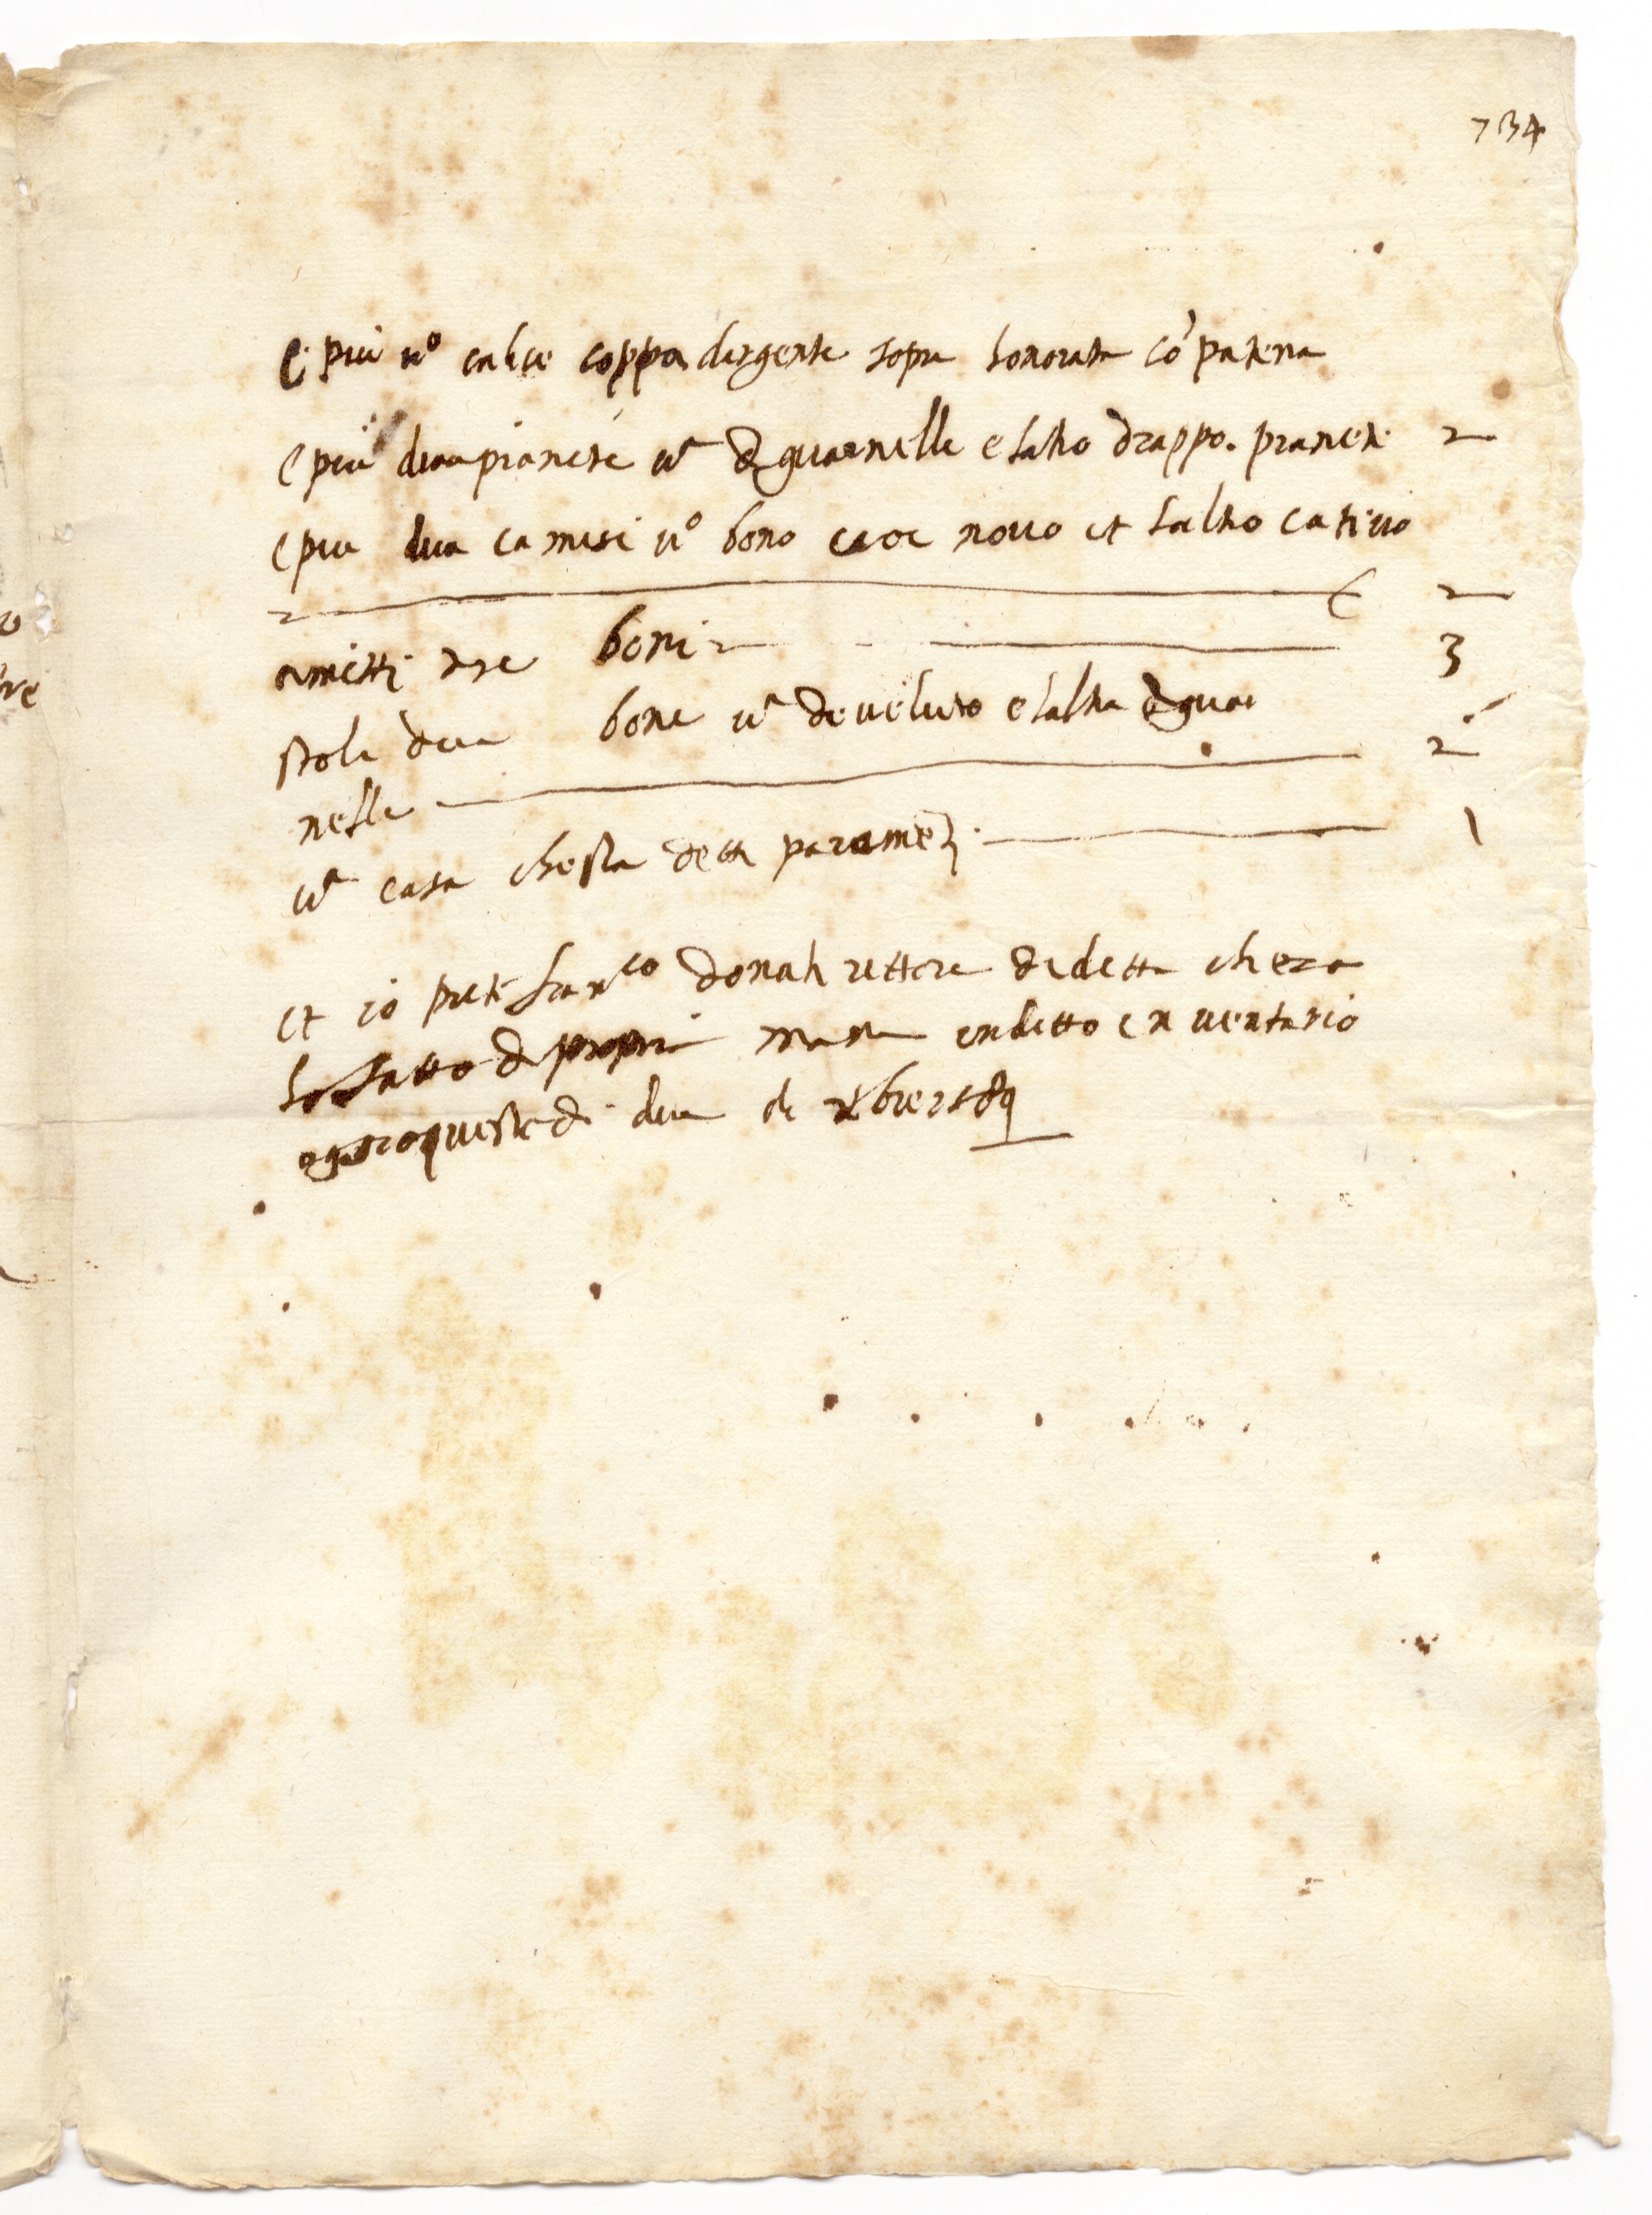 734
E piu uº calice coppa dargente sopra honorata cō patena
E piu dua pianete uª di guarnello e laltro drappo. pianete 2
E piu dua camisi uº bono cioe nouo et laltro catiuo
2
amitti tre boni 3
stole dua bone uª de ueluto e laltra di guar
nello 2
uª casa che sta detti parame 1
et io prete franco donati rettore de detta chieza
ho fatto di propria mano indetto inuentario
oggi questo di dua di